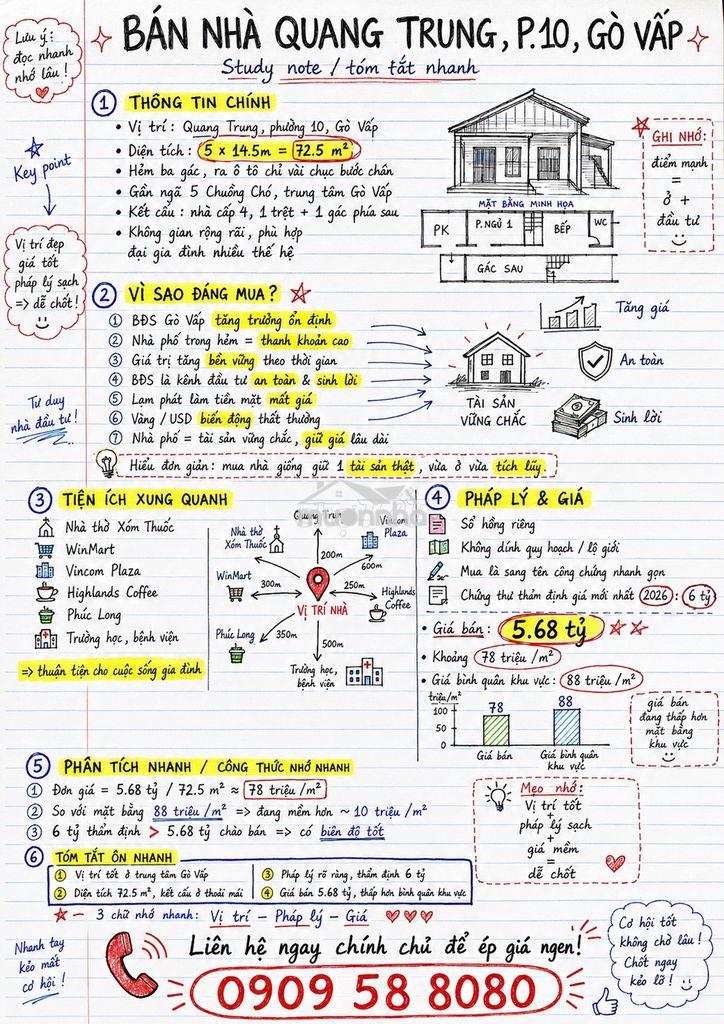 Lưu ý:
đọc nhanh
nhớ lâu!
BÁN NHÀ QUANG TRUNG, P.10, GÒ VẤP
Study note / tóm tắt nhanh
① THÔNG TIN CHÍNH
• Vị trí: Quang Trung, phường 10, Gò Vấp
• Diện tích: 5 x 14.5m = 72.5 m²
• Hẻm ba gác, ra ô tô chỉ vài chục bước chân
• Gần ngã 5 Chuồng Chó, trung tâm Gò Vấp
• Kết cấu: nhà cấp 4, 1 trệt + 1 gác phía sau
• Không gian rộng rãi, phù hợp
đại gia đình nhiều thế hệ
Key point
Vị trí đẹp
giá tốt
pháp lý sạch
=> dễ chốt!
MẶT BẰNG MINH HỌA
PK
P.NGỦ 1
BẾP
WC
GÁC SAU
GHI NHỚ:
điểm mạnh
=
ở +
đầu tư
② VÌ SAO ĐÁNG MUA?
① BĐS Gò Vấp tăng trưởng ổn định
② Nhà phố trong hẻm = thanh khoản cao
③ Giá trị tăng bền vững theo thời gian
④ BĐS là kênh đầu tư an toàn & sinh lời
⑤ Lạm phát làm tiền mặt mất giá
⑥ Vàng / USD biến động thất thường
⑦ Nhà phố = tài sản vững chắc, giữ giá lâu dài
Tư duy
nhà đầu tư!
TÀI SẢN
VỮNG CHẮC
Tăng giá
An toàn
Sinh lời
Hiểu đơn giản: mua nhà giống giữ 1 tài sản thật, vừa ở vừa tích lũy.
③ TIỆN ÍCH XUNG QUANH
Nhà thờ Xóm Thuốc
WinMart
Vincom Plaza
Highlands Coffee
Phúc Long
Trường học, bệnh viện
=> thuận tiện cho cuộc sống gia đình
Quang Trung
Nhà thờ
Xóm Thuốc
Vincom
Plaza
200m
600m
WinMart
300m
250m
Highlands
Coffee
VỊ TRÍ NHÀ
Phúc Long
350m
500m
Trường học,
bệnh viện
muonnha
④ PHÁP LÝ & GIÁ
Sổ hồng riêng
Không dính quy hoạch / lộ giới
Mua là sang tên công chứng nhanh gọn
Chứng thư thẩm định giá mới nhất 2026: 6 tỷ
• Giá bán: 5.68 tỷ
• Khoảng 78 triệu /m²
• Giá bình quân khu vực: 88 triệu /m²
triệu/m²
100
50
0
78
88
Giá bán
Giá bình quân
khu vực
giá bán
đang thấp hơn
mặt bằng
khu vực
⑤ PHÂN TÍCH NHANH / CÔNG THỨC NHỚ NHANH
① Đơn giá = 5.68 tỷ / 72.5 m² ≈ 78 triệu /m²
② So với mặt bằng 88 triệu /m² => đang mềm hơn ~ 10 triệu /m²
③ 6 tỷ thẩm định > 5.68 tỷ chào bán => có biên độ tốt
Mẹo nhớ:
Vị trí tốt
+
pháp lý sạch
+
giá mềm
=
dễ chốt
⑥ TÓM TẮT ÔN NHANH
① Vị trí tốt ở trung tâm Gò Vấp
③ Pháp lý rõ ràng, thẩm định 6 tỷ
② Diện tích 72.5 m², kết cấu ở thoải mái
④ Giá bán 5.68 tỷ, thấp hơn bình quân khu vực
– 3 chữ nhớ nhanh: Vị trí – Pháp lý – Giá
Nhanh tay
kẻo mất
cơ hội!
Liên hệ ngay chính chủ để ép giá ngen!
0909 58 8080
Cơ hội tốt
không chờ lâu!
Chốt ngay
kẻo lỡ!